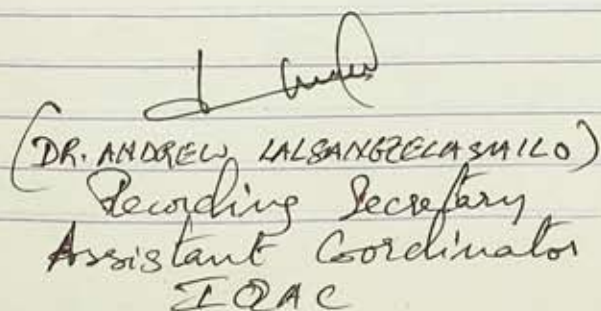 (DR. ANDREW LALSANGZELA SAILO)
Recording Secretary
Assistant Coordinator
IQAC